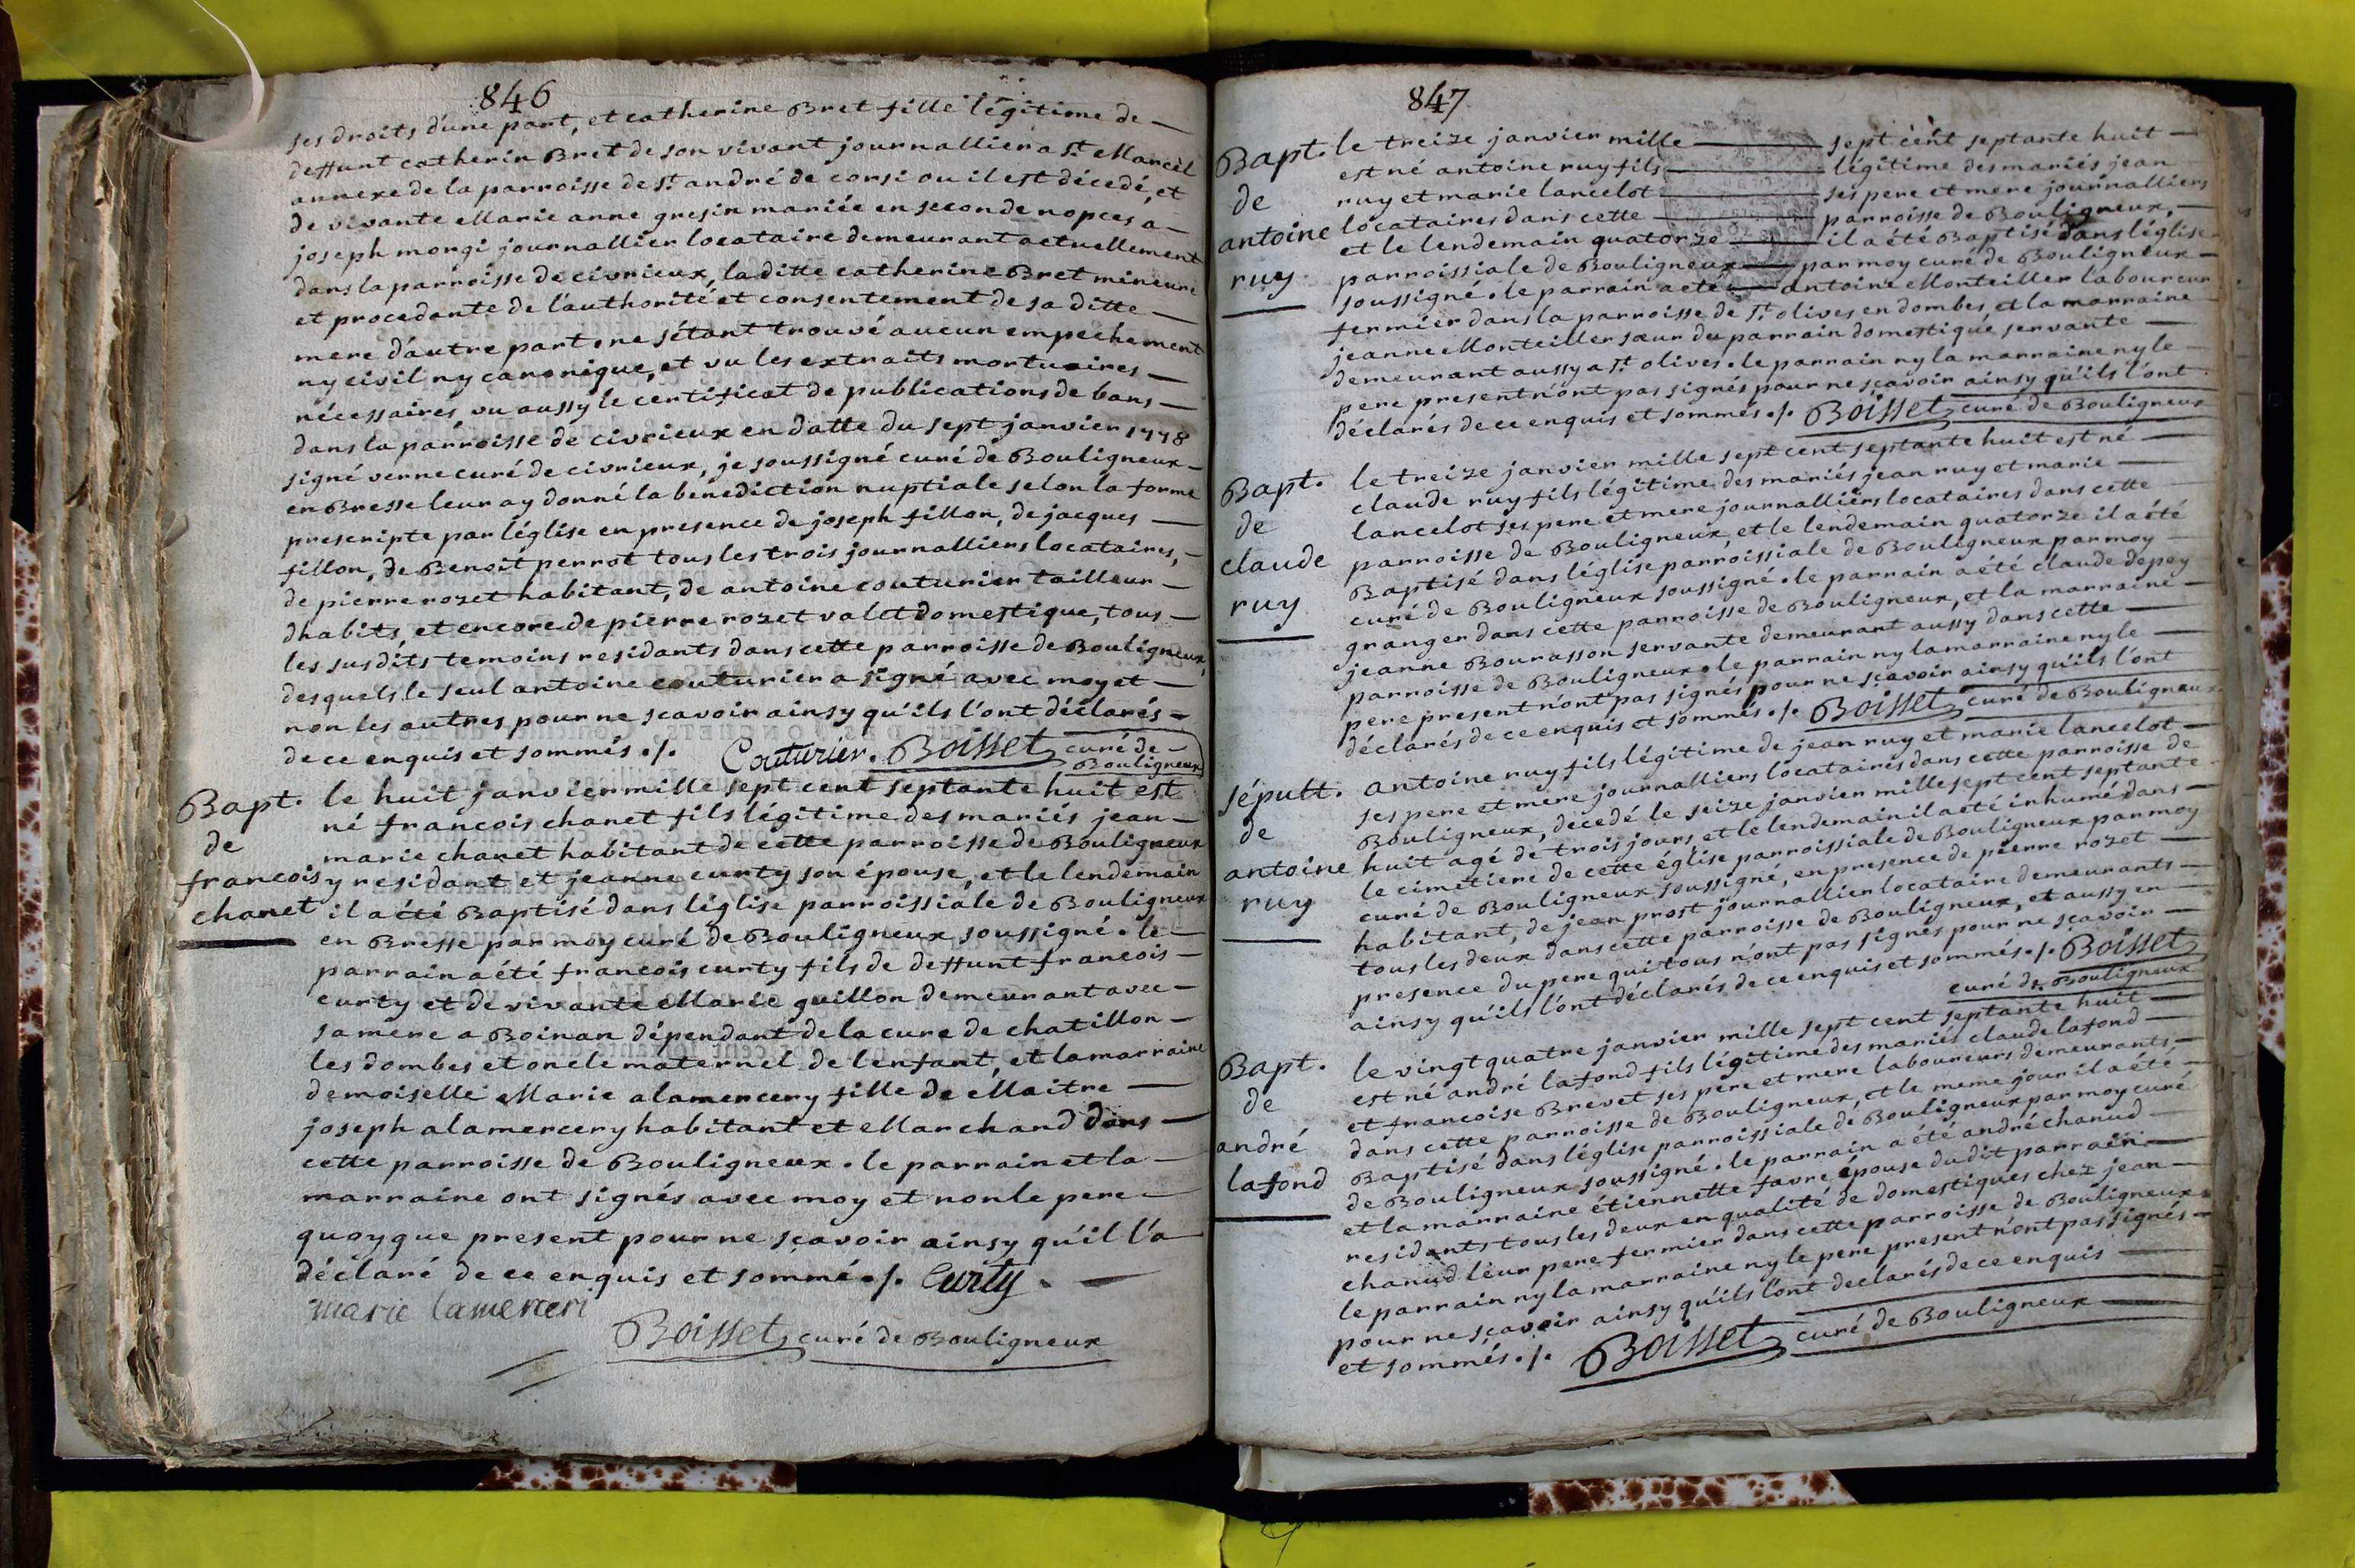 846
ses droits d'une part, et catherine Bret fille légitime de —
deffunt catherin Bret de son vivant journallier a St Marcel
annexe de la parroisse de St andré de corsi ou il est décedé, et
de vivante Marie anne gresin mariée en seconde nopces a —
joseph morgi journallier locataire demeurant actuellement
dans la parroisse de civrieux, la ditte catherine Bret mineure
et procedante de l'authorité et consentement de sa ditte —
mere d'autre part. ne s'étant trouvé aucun empechement
ny civil ny canonique, et vu les extraits mortuaires —
nécessaires, vu aussy le certificat de publications de bans —
dans la parroisse de civrieux en datte du sept janvier 1778
signé verne curé de civrieux, je soussigné curé de Bouligneux —
en Bresse leur ay donné la bénediction nuptiale selon la forme
prescripte par l'église en presence de joseph fillon, de jacques —
fillon, de Benoit perrot tous les trois journalliers locataires, —
de pierre rozet habitant, de antoine couturier tailleur —
d'habits, et encore de pierre rozet valet domestique, tous —
les susdits temoins residants dans cette parroisse de Bouligneux,
desquels le seul antoine couturier a signé avec moy et —
non les autres pour ne scavoir ainsy qu'ils l'ont déclarés —
de ce enquis et sommés ./. Couturier. Boisset curé de —
Bouligneux
Bapt. de francois chanet
le huit janvier mille sept cent septante huit est
né francois chanet fils légitime des mariés jean —
marie chanet habitant de cette parroisse de Bouligneux
y residant et jeanne curty son épouse, et le lendemain
il a été Baptisé dans l'église parroissiale de Bouligneux
en Bresse par moy curé de Bouligneux soussigné. le —
parrain a été francois curty fils de deffunt francois —
curty et de vivante Marie guillon demeurant avec —
sa mere a Boinan dépendant de la cure de chatillon —
les dombes et oncle maternel de l'enfant, et la marraine
demoiselle Marie alamercery fille de Maitre —
joseph alamercery habitant et Marchand dans —
cette parroisse de Bouligneux. le parrain et la —
marraine ont signés avec moy et non le pere —
quoyque present pour ne sçavoir ainsy qu'il l'a
déclaré de ce enquis et sommé ./. Curty. —
marie lamerceri
Boisset curé de Bouligneux
847
Bapt. de antoine ruy
le treize janvier mille — sept cent septante huit —
est né antoine ruy fils — légitime des mariés jean
ruy et marie lancelot — ses pere et mere journalliers
locataires dans cette — parroisse de Bouligneux, —
et le lendemain quatorze — il a été Baptisé dans l'église
parroissiale de Bouligneux — par moy curé de Bouligneux —
soussigné. le parrain a été — antoine Monteiller laboureur
fermier dans la parroisse de St olives en dombes, et la marraine
jeanne Monteiller sœur du parrain domestique servante —
demeurant aussy a St olives. le parrain ny la marraine ny le —
pere present n'ont pas signés pour ne sçavoir ainsy qu'ils l'ont
déclarés de ce enquis et sommés ./. Boisset curé de Bouligneux
Bapt. de claude ruy
le treize janvier mille sept cent septante huit est né —
claude ruy fils légitime des mariés jean ruy et marie —
lancelot ses pere et mere journalliers locataires dans cette —
parroisse de Bouligneux, et le lendemain quatorze il a été
Baptisé dans l'église parroissiale de Bouligneux par moy —
curé de Bouligneux soussigné. le parrain a été claude depey
granger dans cette parroisse de Bouligneux, et la marraine —
jeanne Bourasson servante demeurant aussy dans cette —
parroisse de Bouligneux. le parrain ny la marraine ny le —
pere present n'ont pas signés pour ne sçavoir ainsy qu'ils l'ont
déclarés de ce enquis et sommés ./. Boisset curé de Bouligneux
sépult. de antoine ruy
antoine ruy fils légitime de jean ruy et marie lancelot —
ses pere et mere journalliers locataires dans cette parroisse de
Bouligneux, décedé le seize janvier mille sept cent septante
huit agé de trois jours et le lendemain il a été inhumé dans —
le cimetiere de cette église parroissiale de Bouligneux par moy
curé de Bouligneux soussigné, en presence de pierre rozet —
habitant, de jean prost journallier locataire demeurants —
tous les deux dans cette parroisse de Bouligneux, et aussy en —
presence du pere qui tous n'ont pas signés pour ne sçavoir —
ainsy qu'ils l'ont déclarés de ce enquis et sommés ./. Boisset
curé de Bouligneux
Bapt. de andré lafond
le vingt quatre janvier mille sept cent septante huit —
est né andré lafond fils légitime des mariés claude lafond —
et francoise Brevet ses pere et mere laboureurs demeurants —
dans cette parroisse de Bouligneux, et le meme jour il a été —
Baptisé dans l'église parroissiale de Bouligneux par moy curé
de Bouligneux soussigné. le parrain a été andré chanud —
et la marraine étiennette favre épouse du dit parrain —
residants tous les deux en qualité de domestiques chez jean —
chanud leur pere fermier dans cette parroisse de Bouligneux
le parrain ny la marraine ny le pere present n'ont pas signés —
pour ne sçavoir ainsy qu'ils l'ont declarés de ce enquis —
et sommés ./. Boisset curé de Bouligneux —